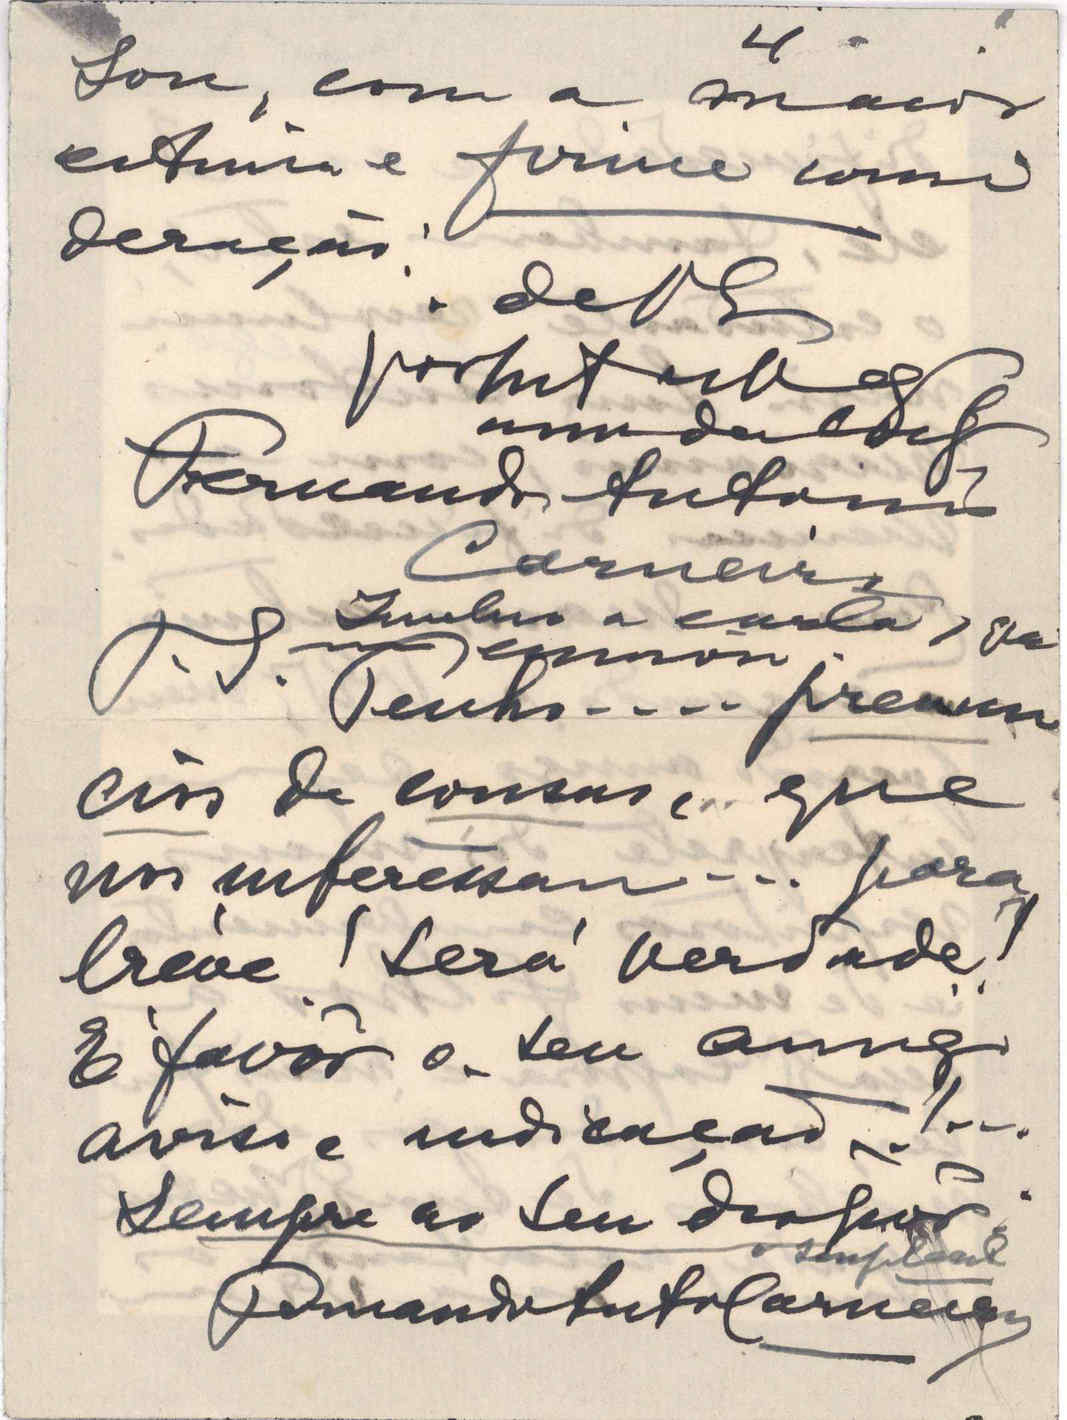 4
Sou, com a maior
estima e firme consi
deração:
de V. E.
Fernando Antonio
Carneiro
P. S. a carta, já
Tenho.... prenun
cios de cousas, que
nos interessam... para
breve! Será verdade!
É favôr o seu amigo
aviso e indicação...!...
Sempre ao seu dispôr.
Fernando Antº Carneiro